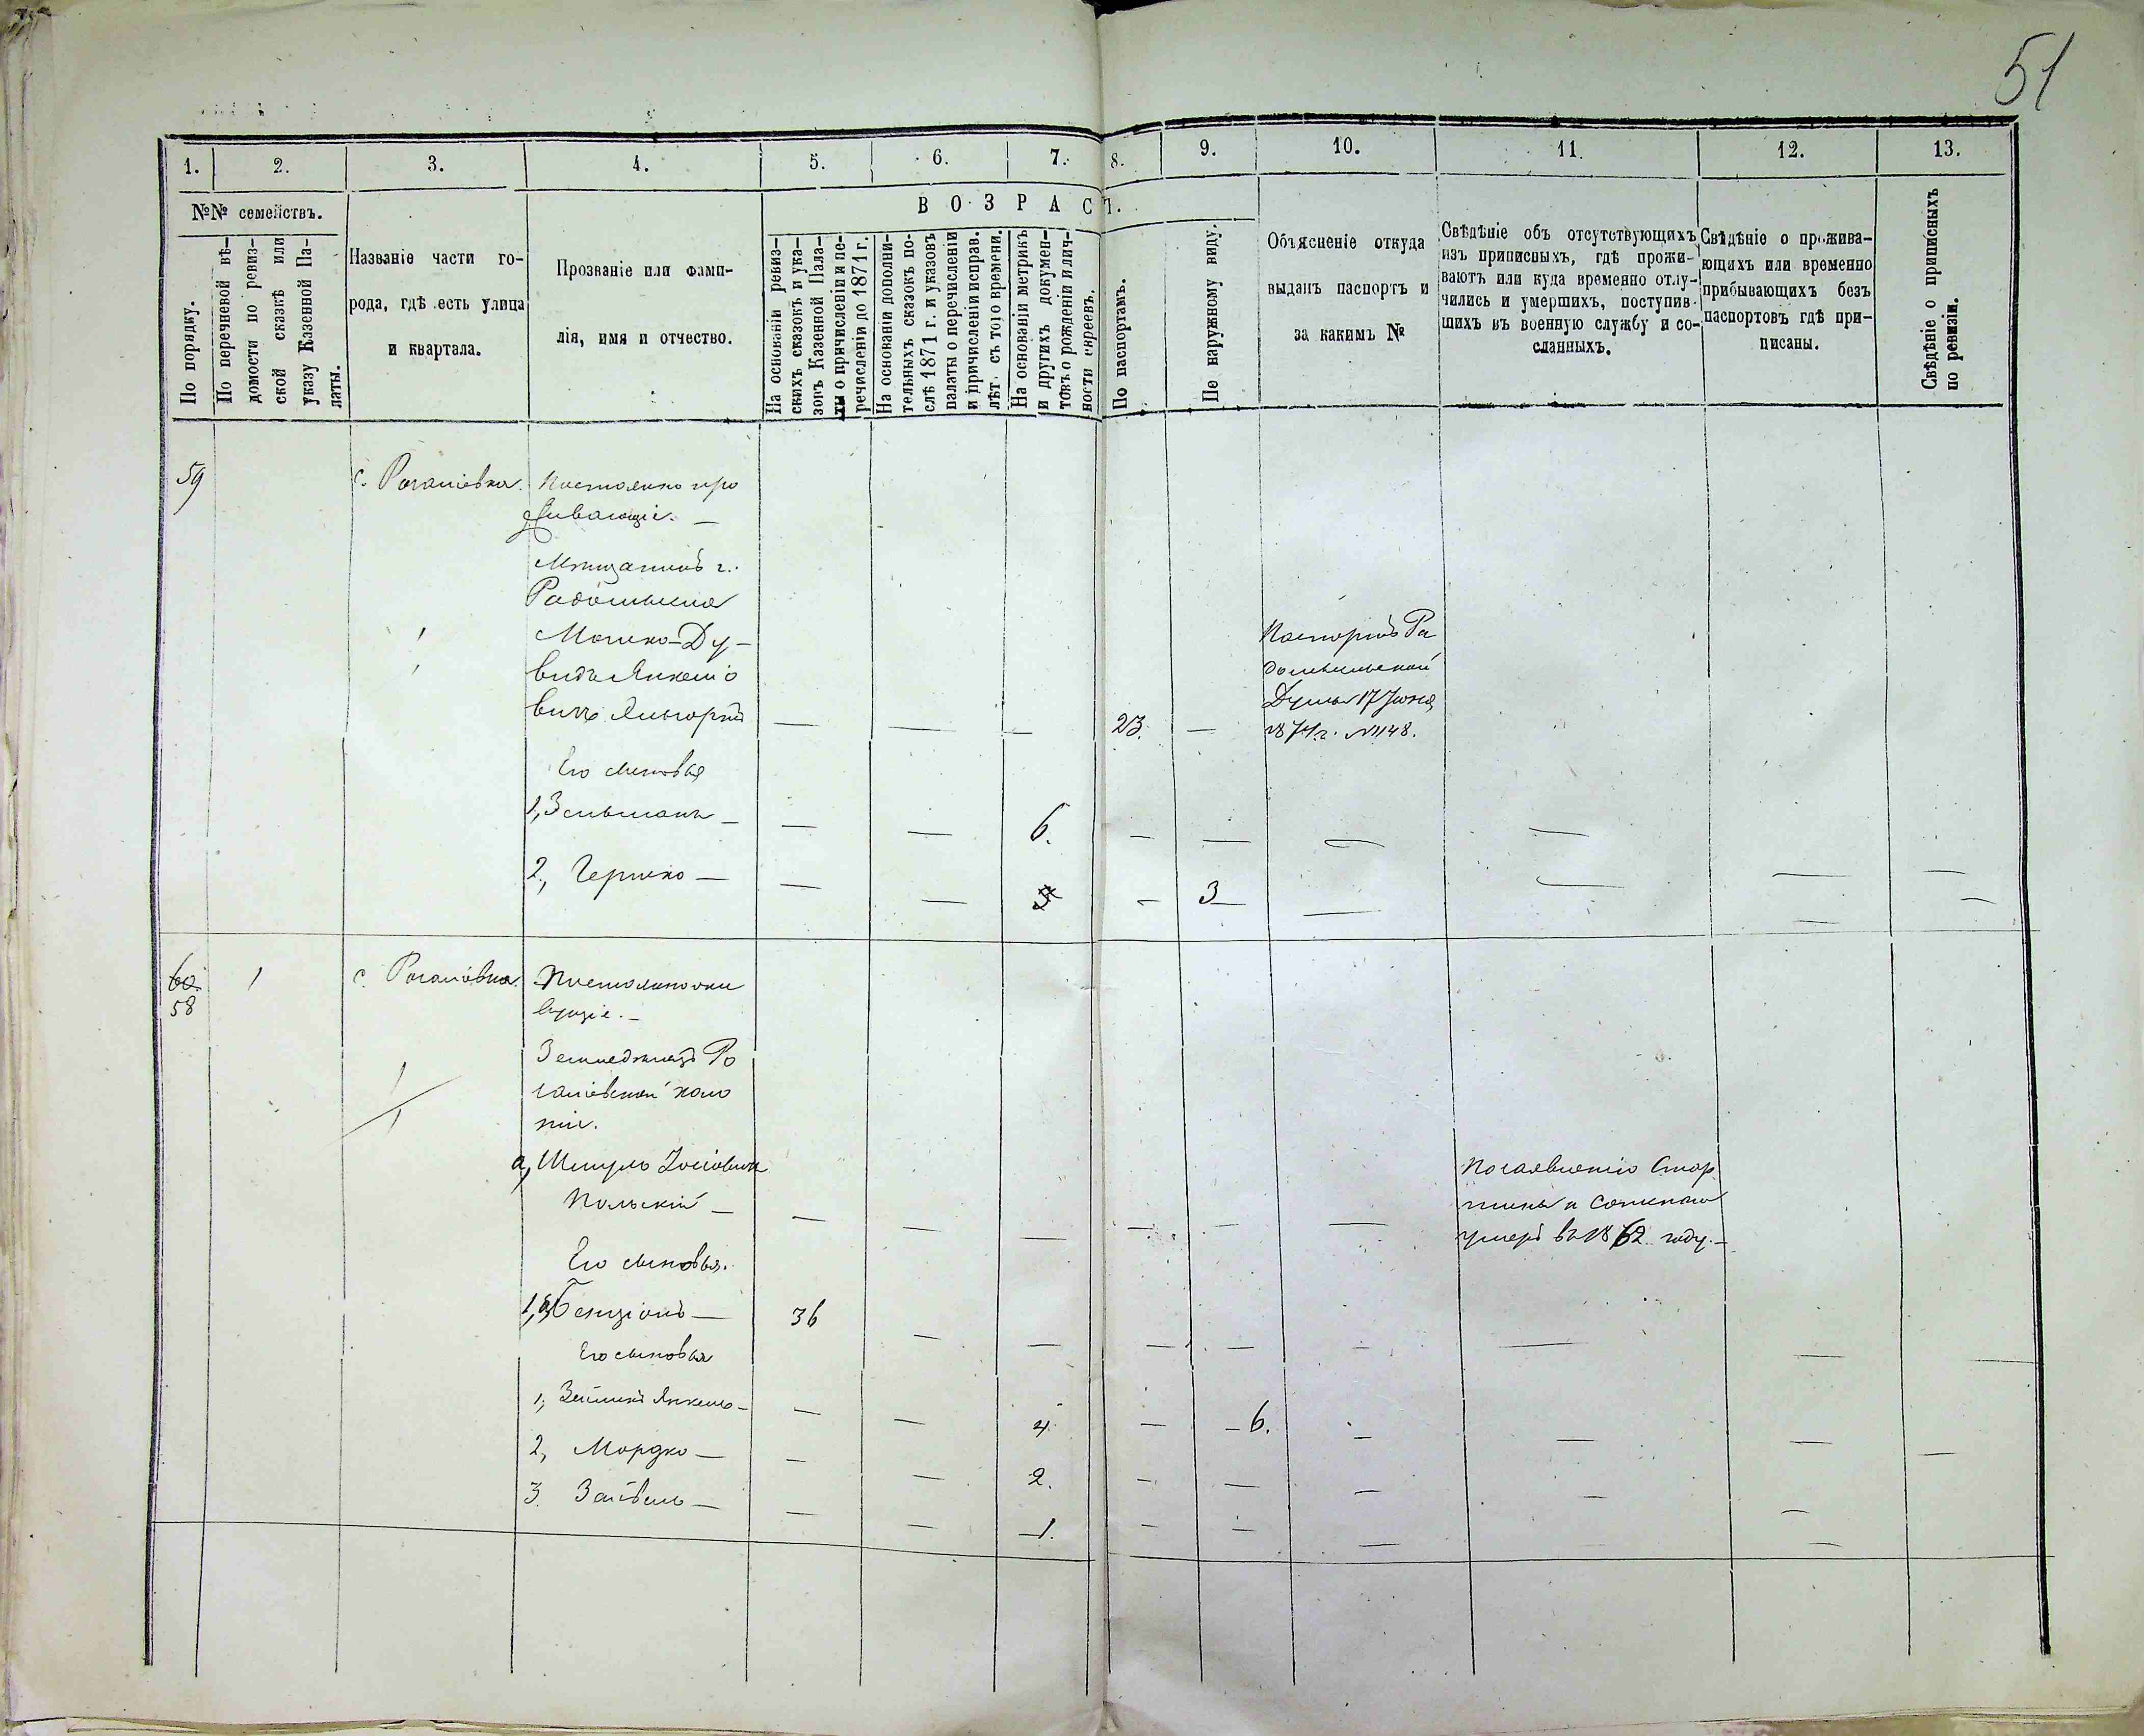 51
1. 2. 3. 4. 5. 6. 7. 8. 9. 10. 11. 12. 13.
№№ семействъ.
По порядку.
По перечневой вѣ-
домости по ревиз-
ской сказкѣ или
указу Казенной Па-
латы.
Названіе части го-
рода, гдѣ есть улица
и квартала.
Прозваніе или фами-
лія, имя и отчество.
ВОЗРАСТ.
На основаніи ревиз-
скихъ сказокъ и ука-
зокъ Казенной Пала-
ты о причисленіи и пе-
речисленіи до 1871 г.
На основаніи дополни-
тельныхъ сказокъ по-
слѣ 1871 г. и указовъ
палаты о перечисленіи
и причисленіи исправ.
лѣт. съ того времени.
На основаніи метрикъ
и другихъ докумен-
товъ о рожденіи и лич-
ности евреевъ.
По паспортамъ.
По наружному виду.
Объясненіе откуда
выданъ паспортъ и
за какимъ №
Свѣдѣніе объ отсутствующихъ
изъ приписныхъ, гдѣ прожи-
ваютъ или куда временно отлу-
чились и умершихъ, поступив-
шихъ въ военную службу и со-
сланныхъ.
Свѣдѣніе о прожива-
ющихъ или временно
прибывающихъ безъ
паспортовъ гдѣ при-
писаны.
Свѣдѣніе о приписныхъ
по ревизіи.
59
с. Рогановка.
Постоянно про
живающіе. —
Мѣщанинъ г.
Радомысля
Мошко-Ду-
видъ Янкелiо
вичъ
— — — 23. —
Паспортъ Ра
домысльской
Думы 17 Іюня
1874 г. №1148.
Его сыновья
1, Зельманъ — — — 6. — — — —
2, Гершко — — — — 3 — — — —
60 1 с. Рогановка.
58
Постоянножи
вущіе. —
Земледѣлецъ Ро
гановской коло
ніи.
а, Шмуль Іосіовичъ
Польскій — — — — — — —
По заявленію Стар
шины и Сотскаго
умеръ въ 1862 году. —
Его сыновья.
1, Бенціонъ — 36 — — — — — — — —
Его сыновья
1, Зейликъ Янкель — — — 4 — — 6. — — —
2, Мордко — — — 2. — — — — —
3. Зайвель — — — 1. — — — —